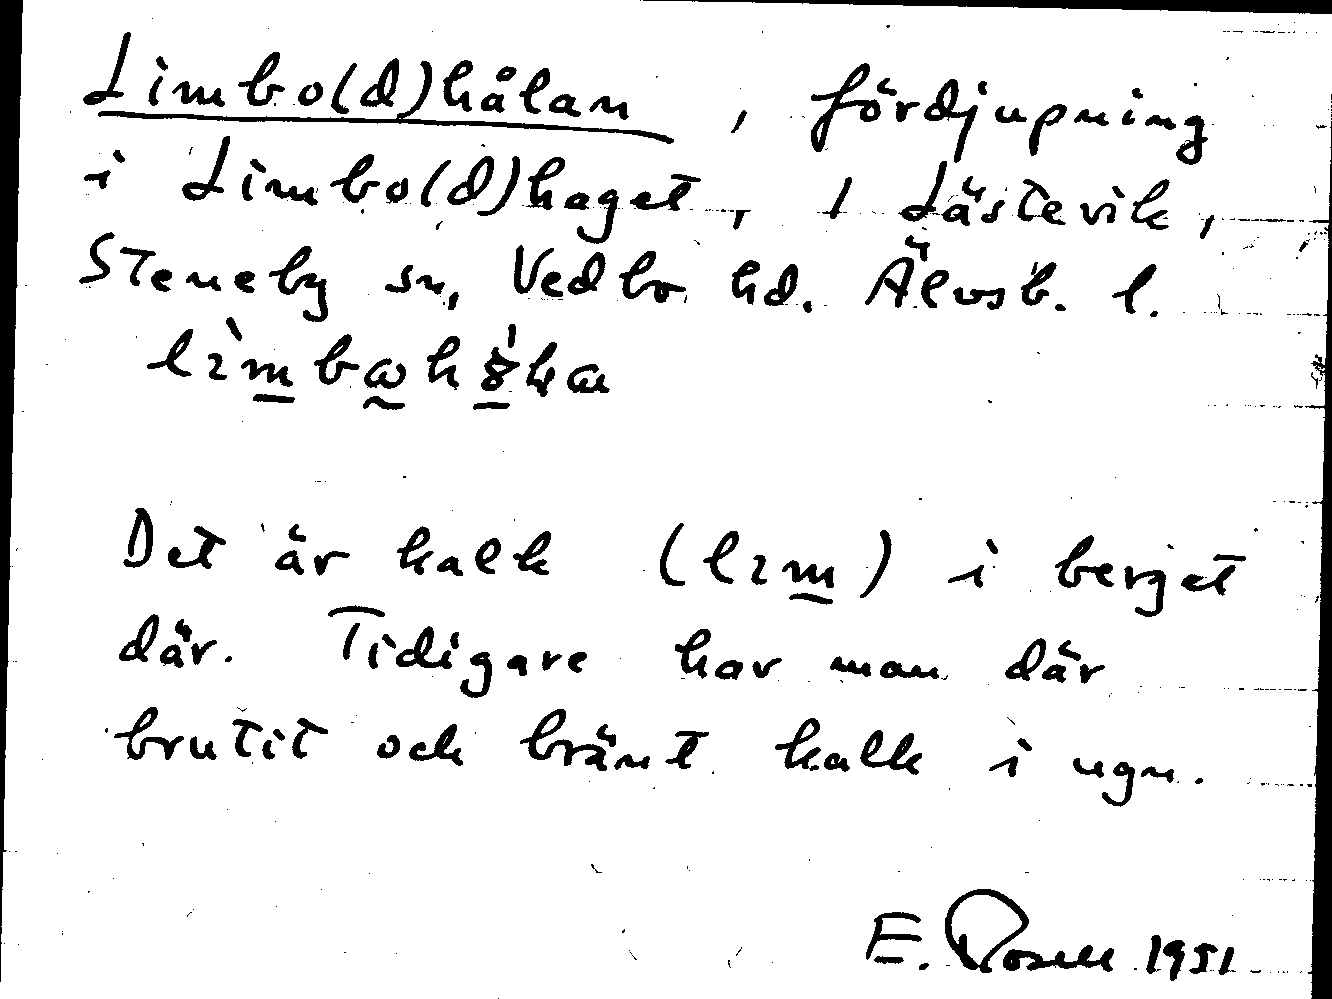 Limbo(d)hålan, fördjupning
i Limbo(d)haget, 1 Lästevik,
Steneby sn, Vedbo hd. Älvsb. l.
Det är kalk (lɩm) i berget
där. Tidigare har man där
brutit och bränt kalk i ugn.
E. Rosell 1951